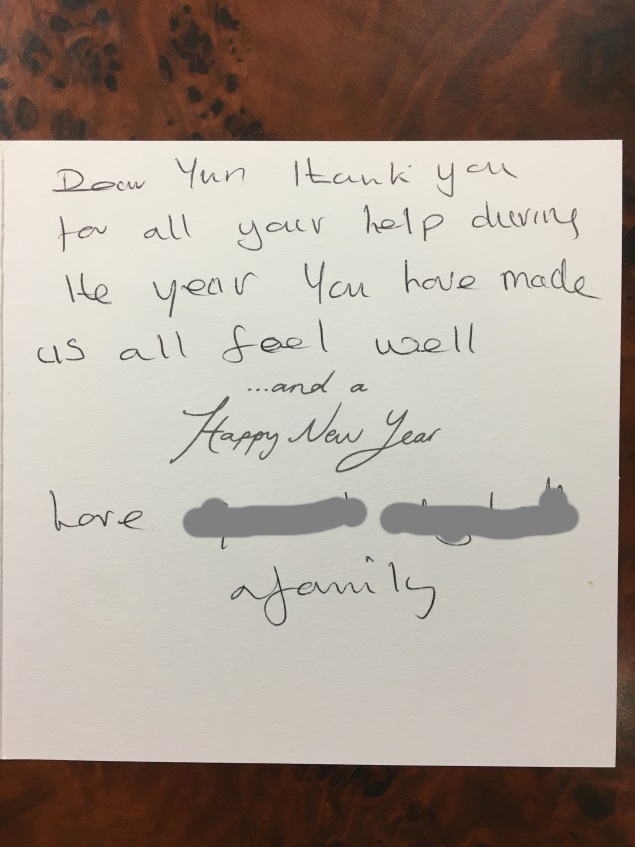 Dear Yun Thank you
for all your help during
the year You have made
us all feel well
...and a
Happy New Year
Love
& family